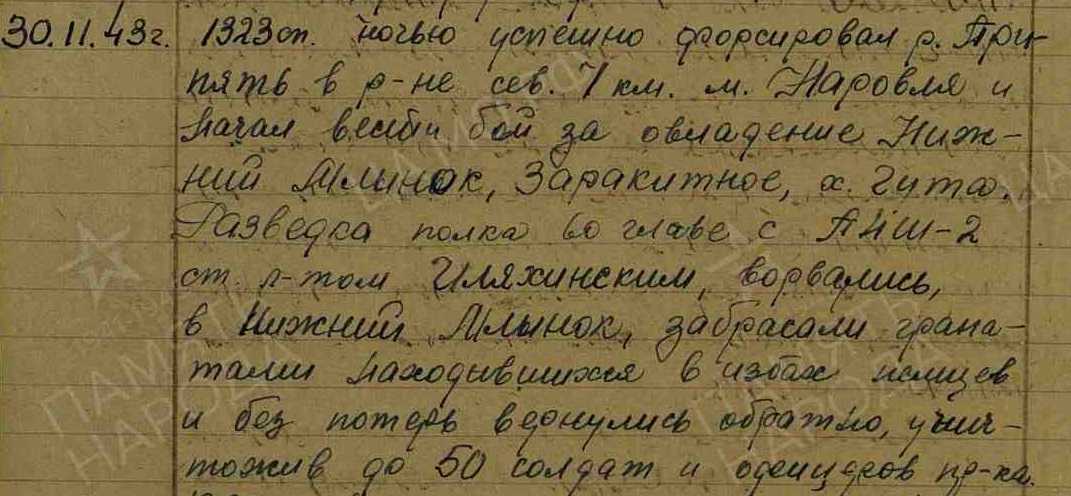 30.11.43г. 1323сп. ночью успешно форсировал р. При-
пять в р-не сев. 1 км. м. Наровля и
начал вести бой за овладение Ниж-
ний Млынок, Заракитное, х. Гута.
Разведка полка во главе с ПНШ-2
ст. л-том Шляхинским, ворвались,
в Нижний Млынок, забрасали грана-
тами находывшихся в избах немцев
и без потерь вернулись обратно, унич-
тожив до 50 солдат и офицеров пр-ка.
ПАМЯТЬ
НАРОДА
ПАМЯТЬ
НАРОДА